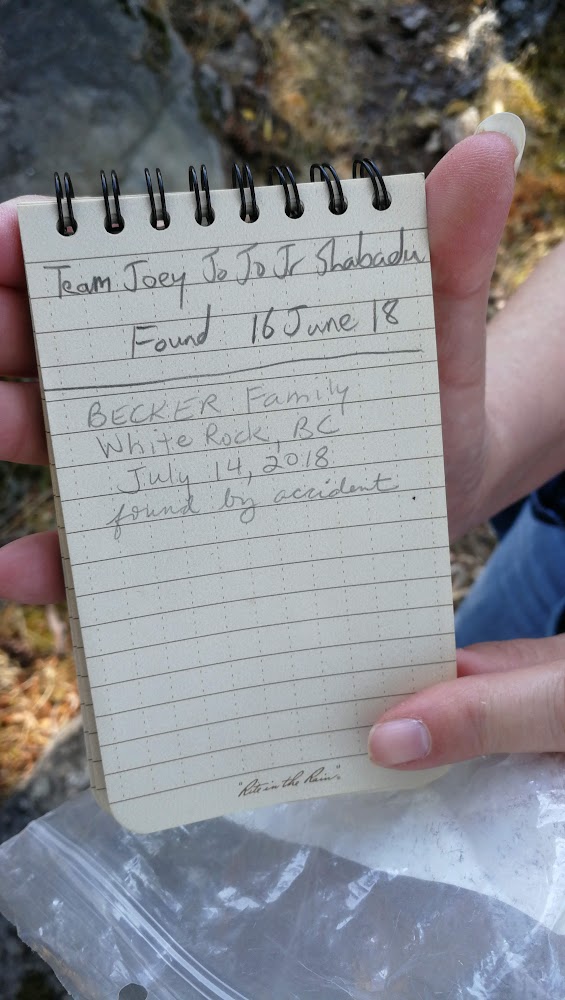 Team Joey Jo Jo Jr Shabadu
Found 16 June 18
BECKER Family
White Rock, BC
July 14, 2018
found by accident
"Rite in the Rain"